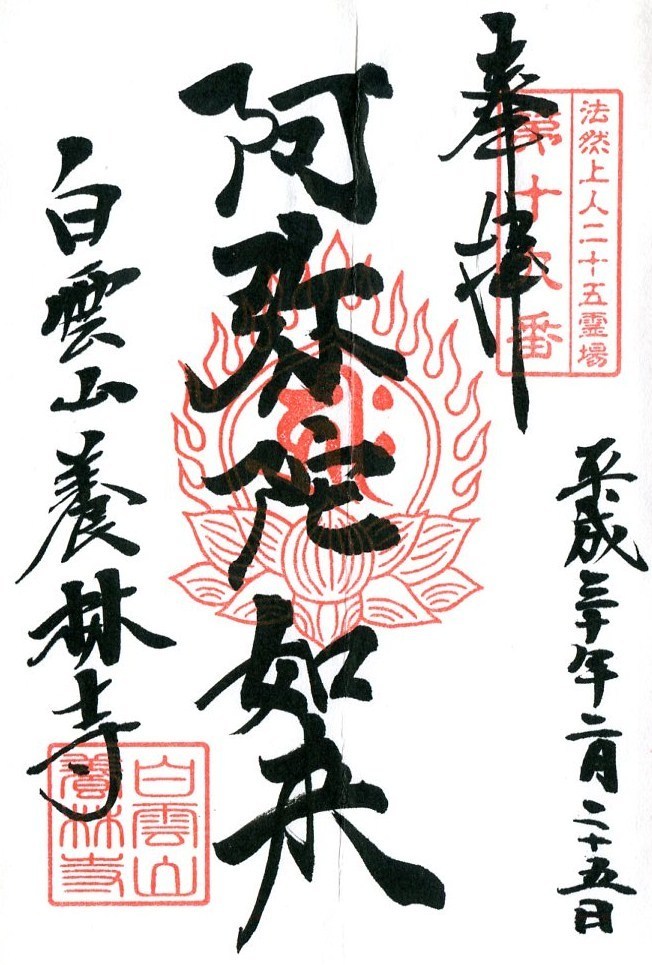 法然上人二十五霊場
第十 番
奉拝
平成三十年二月二十五日
阿弥陀如来
白雲山養林寺
白雲山
養林寺